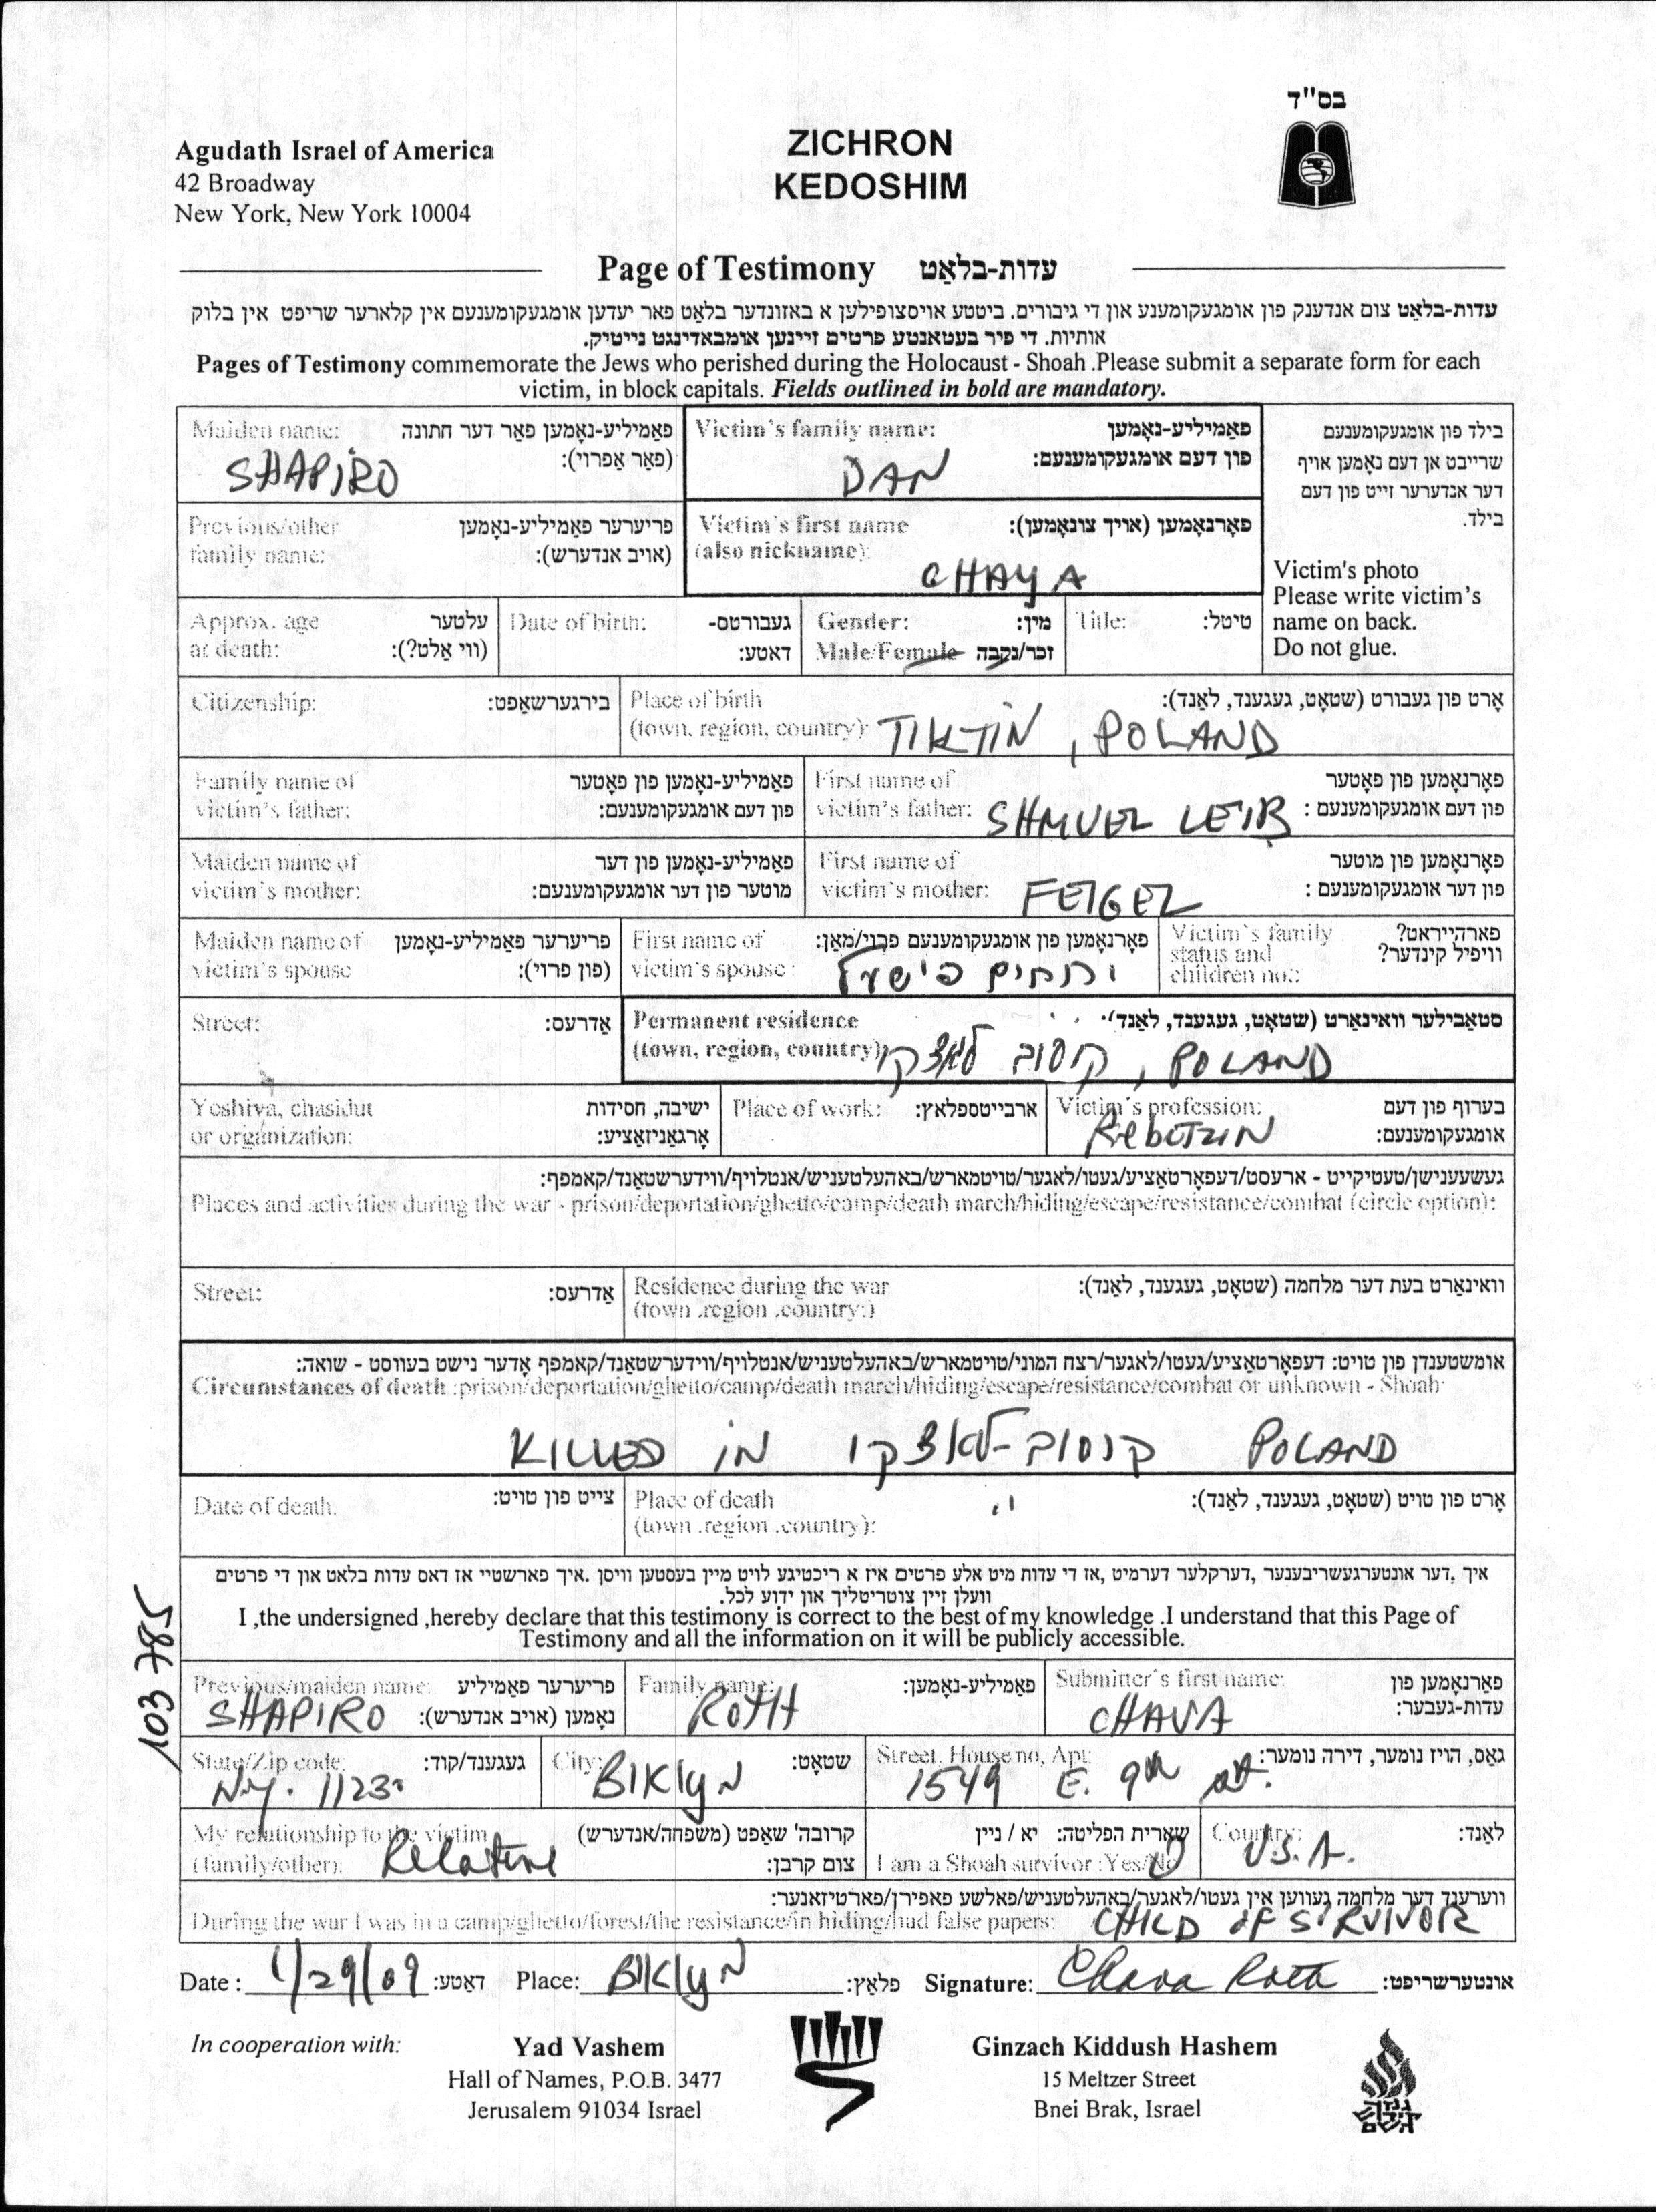 בס"ד
Agudath Israel of America
42 Broadway
New York, New York 10004
ZICHRON
KEDOSHIM
Page of Testimony עדות-בלאַט
עדות-בלאַט צום אנדענק פון אומגעקומענע און די גיבורים. ביטטע אויסצופילען א באזונדער בלאַט פאר יעדען אומגעקומענעם אין קלארער שריפט אין בלוק
אותיות. די פיר בעטאנטע פרטים זיינען אומבאדינגט נייטיק.
Pages of Testimony commemorate the Jews who perished during the Holocaust - Shoah .Please submit a separate form for each
victim, in block capitals. Fields outlined in bold are mandatory.
Maiden name: פאַמיליע-נאָמען פאַר דער חתונה
(פאַר אַפרוי):
SHAPIRO
Victim's family name: פאַמיליע-נאָמען
פון דעם אומגעקומענעם:
DAN
בילד פון אומגעקומענעם
שרייבט אן דעם נאָמען אויף
דער אנדערער זייט פון דעם
בילד.
Victim's photo
Please write victim's
name on back.
Do not glue.
Previous/other פריערער פאַמיליע-נאָמען
family name: (אויב אנדערש):
Victim's first name פאָרנאָמען (אויך צונאָמען):
(also nickname):
CHAYA
Approx. age עלטער
at death: (ווי אַלט?):
Date of birth: געבורטס-
דאטע:
Gender: מין:
Male/Female זכר/נקבה
Title: טיטל:
Citizenship: בירגערשאַפט:
Place of birth אָרט פון געבורט (שטאָט, געגענד, לאַנד):
(town, region, country): TIKTIN, POLAND
Family name of פאַמיליע-נאָמען פון פאָטער
victim's father: פון דעם אומגעקומענעם:
First name of פאָרנאָמען פון פאָטער
victim's father: SHMUEL LEIB פון דעם אומגעקומענעם :
Maiden name of פאַמיליע-נאָמען פון דער
victim's mother: מוטער פון דער אומגעקומענעם:
First name of פאָרנאָמען פון מוטער
victim's mother: FEIGEL פון דער אומגעקומענעם :
Maiden name of פריערער פאַמיליע-נאָמען
victim's spouse (פון פרוי):
First name of פאָרנאָמען פון אומגעקומענעם פרוי/מאַן:
victim's spouse :
Victim's family פארהייראט?
status and וויפיל קינדער?
children no.:
Street: אַדרעס:
Permanent residence סטאַבילער וואינאַרט (שטאָט, געגענד, לאַנד):
(town, region, country): קוסוב לאצקו, POLAND
Yeshiva, chasidut ישיבה, חסידות
or organization: אָרגאַניזאַציע:
Place of work: ארבייטספלאץ:
Victim's profession: בערוף פון דעם
Rebetzin אומגעקומענעם:
געשעענישן/טעטיקייט - ארעסט/דעפאָרטאַציע/געטו/לאגער/טויטמארש/באהעלטעניש/אנטלויף/ווידערשטאַנד/קאמפף:
Places and activities during the war - prison/deportation/ghetto/camp/death march/hiding/escape/resistance/combat (circle option):
Street: אַדרעס:
Residence during the war וואינאַרט בעת דער מלחמה (שטאָט, געגענד, לאַנד):
(town .region .country:)
אומשטענדן פון טויט: דעפאָרטאַציע/געטו/לאגער/רצח המוני/טויטמארש/באהעלטעניש/אנטלויף/ווידערשטאַנד/קאמפף אָדער נישט בעווסט - שואה:
Circumstances of death :prison/deportation/ghetto/camp/death march/hiding/escape/resistance/combat or unknown - Shoah:
KILLED IN קוסוב-לאצקו POLAND
Date of death. צייט פון טויט:
Place of death " אָרט פון טויט (שטאָט, געגענד, לאַנד):
(town .region .country):
איך ,דער אונטערגעשריבענער ,דערקלער דערמיט ,אז די עדות מיט אלע פרטים איז א ריכטיגע לויט מיין בעסטען וויסן .איך פארשטיי אז דאס עדות בלאט און די פרטים
וועלן זיין צוטריטליך און ידוע לכל.
I ,the undersigned ,hereby declare that this testimony is correct to the best of my knowledge .I understand that this Page of
Testimony and all the information on it will be publicly accessible.
103785
Previous/maiden name: פריערער פאַמיליע
SHAPIRO נאָמען (אויב אנדערש):
Family name: פאַמיליע-נאָמען:
ROTH
Submitter's first name: פאַרנאָמען פון
CHAVA עדות-געבער:
State/Zip code: געגענד/קוד:
N.Y. 1123
City: שטאָט:
BIKlyN
Street, House no, Apt: גאַס, הויז נומער, דירה נומער:
1549 E. 9th st.
My relationship to the victim קרובה' שאַפט (משפחה/אנדערש)
(family/other): Relative צום קרבן:
שארית הפליטה: יא / ניין
I am a Shoah survivor :Yes/No
Country: לאַנד:
U.S.A.
ווערענד דער מלחמה געווען אין געטו/לאגער/באהעלטעניש/פאלשע פאפירן/פארטיזאנער:
During the war I was in a camp/ghetto/forest/the resistance/in hiding/had false papers: CHILD OF SURVIVOR
Date : 1/29/09 דאַטע: Place: BIKlyN פלאַץ: Signature: Chava Roth אונטערשריפט:
In cooperation with:
Yad Vashem
Hall of Names, P.O.B. 3477
Jerusalem 91034 Israel
Ginzach Kiddush Hashem
15 Meltzer Street
Bnei Brak, Israel